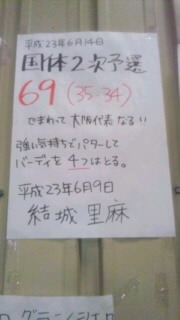 平成23年6月14日
国体2次予選
69 (35-34)
でまわって大阪代表なる!!
強い気持ちでパターして
バーディを4つはとる。
平成23年6月9日
結城里麻